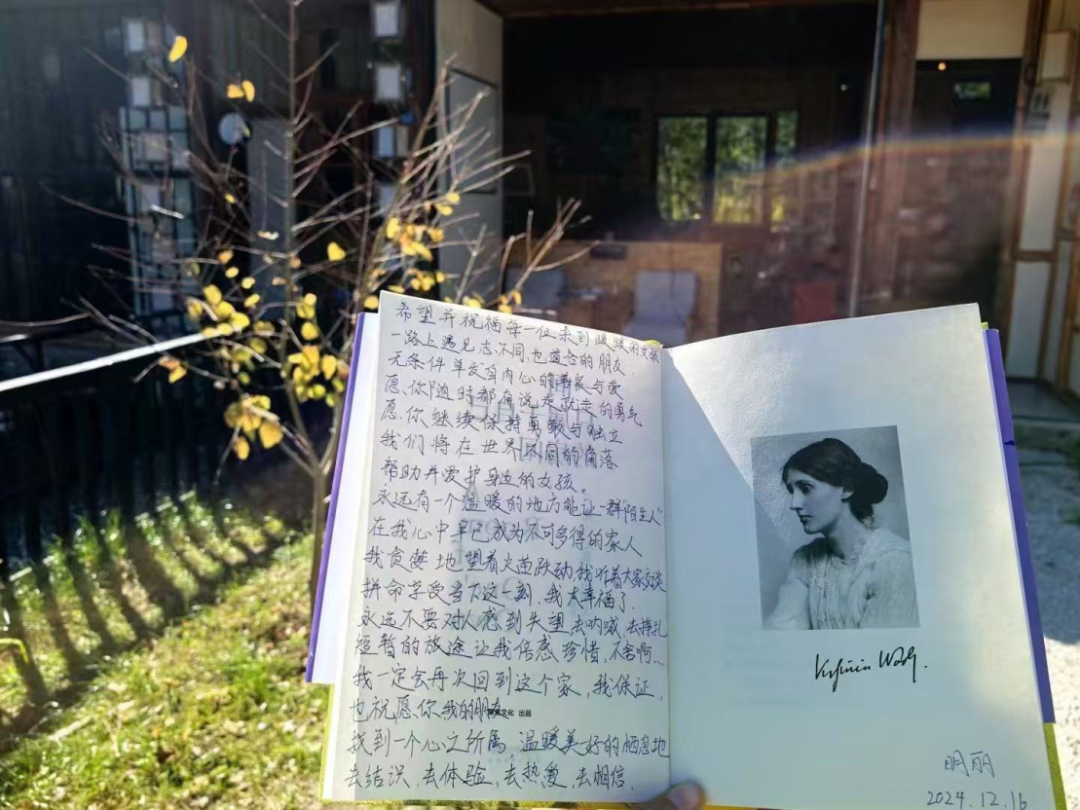 希望并祝福每一位来到暖暖的女孩
一路上遇见志不同,也适合的朋友.
无条件单发自内心的善良与爱
愿、你随时都有说走就走的勇气
愿、你继续保持勇敢与独立
我们将在世界不同的角落
帮助并爱护身边的女孩。
永远有一个温暖的地方能让一群“陌生人”
在我心中早已成为不可多得的家人
我贪婪地望着火苗跃动,我听着大家交谈
拼命享受当下这一刻,我太幸福了.
永远不要对人感到失望,去呐喊,去挣扎
短暂的旅途让我倍感珍惜,不舍啊...
我一定会再次回到这个家,我保证.
也祝愿、你,我的朋友
文化 出品
找到一个心之所属,温暖美好的栖息地
去结识,去体验,去热爱,去相信.
Virginia Woolf.
明丽
2024.12.16